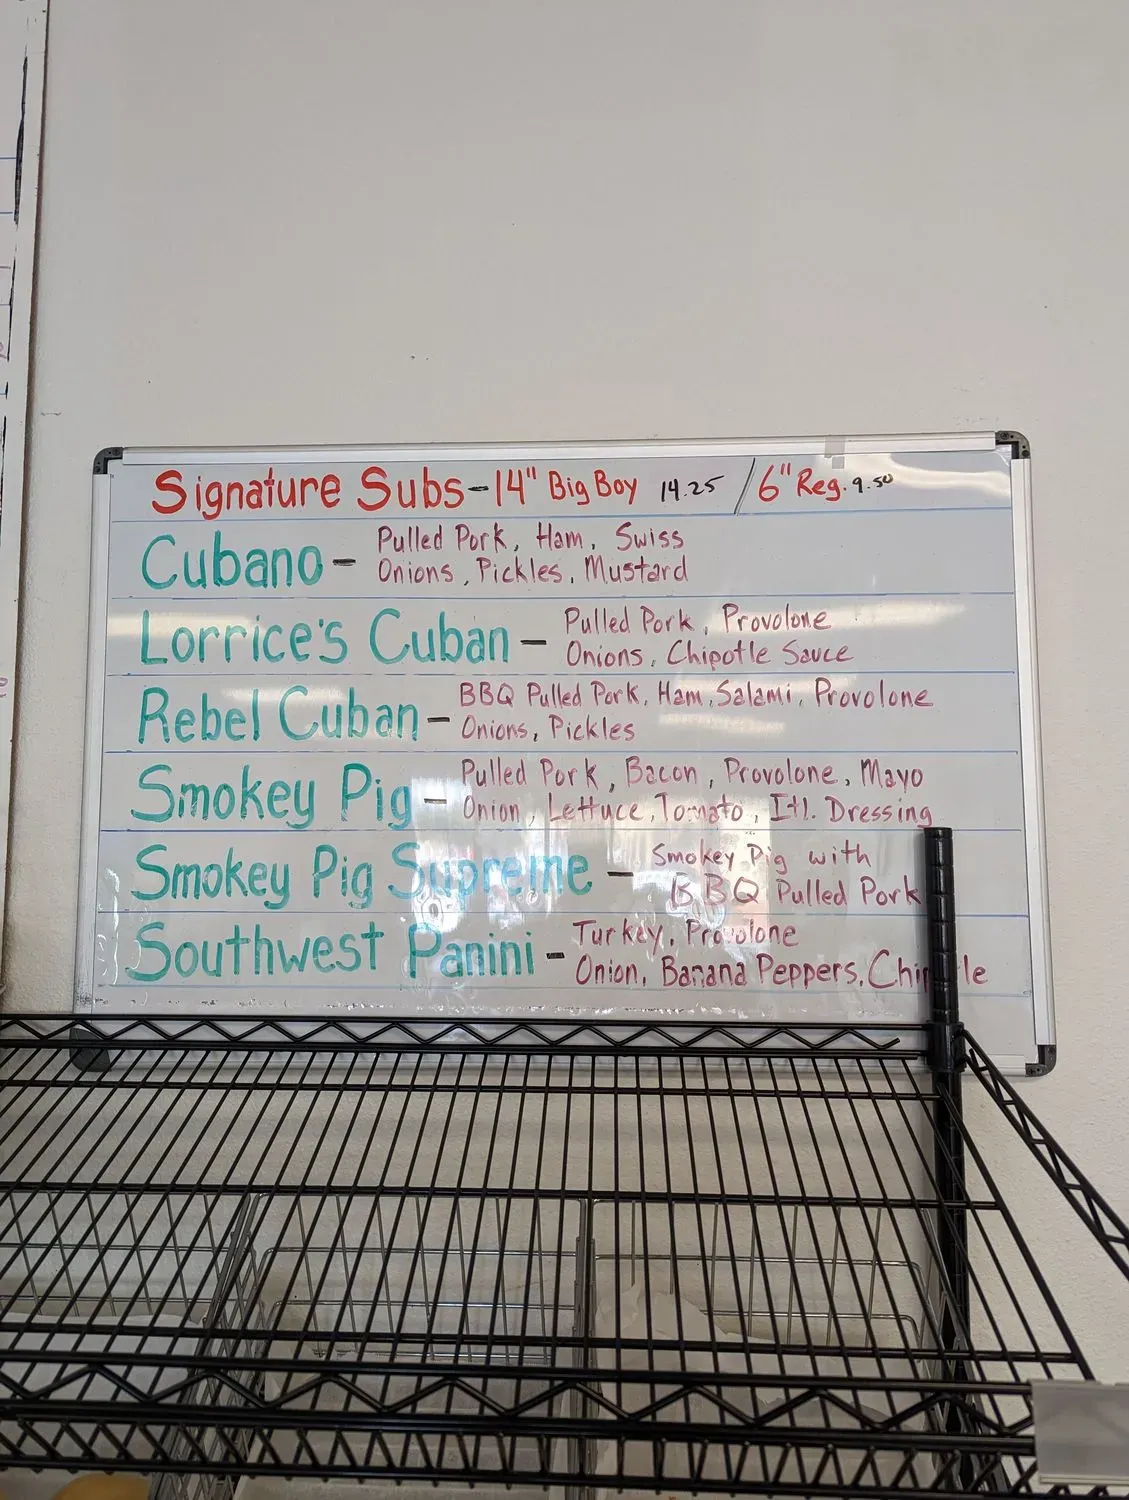 Signature Subs-14" Big Boy 14.25 / 6" Reg. 9.50
Cubano - Pulled Pork, Ham, Swiss
Onions, Pickles, Mustard
Lorrice's Cuban - Pulled Pork, Provolone
Onions, Chipotle Sauce
Rebel Cuban - BBQ Pulled Pork, Ham, Salami, Provolone
Onions, Pickles
Smokey Pig - Pulled Pork, Bacon, Provolone, Mayo
Onion, Lettuce, Tomato, Itl. Dressing
Smokey Pig Supreme - Smokey Pig with
BBQ Pulled Pork
Southwest Panini - Turkey, Provolone
Onion, Banana Peppers,